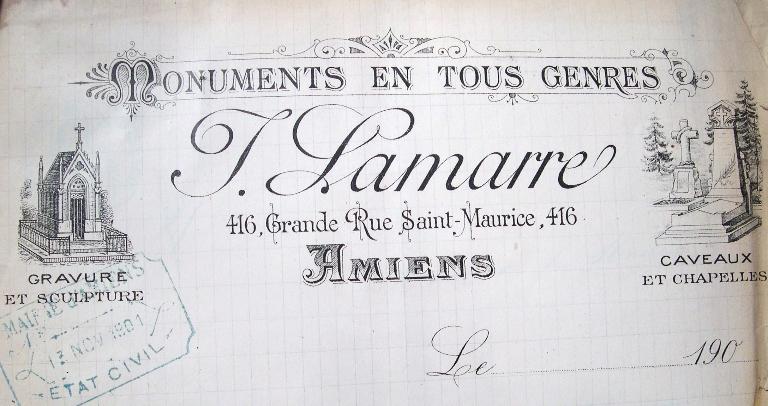 MONUMENTS EN TOUS GENRES
J. Lamarre
416, Grande Rue Saint-Maurice, 416
AMIENS
GRAVURE
ET SCULPTURE
CAVEAUX
ET CHAPELLES
MAIRIE D'AMIENS
17 NOV 1901
ETAT CIVIL
Le 190